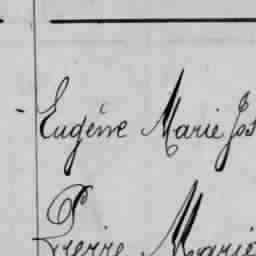 Eugène Marie Jos
Pierre Marie